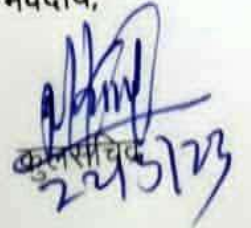 भवदीय,
कुलसचिव
22/3/23